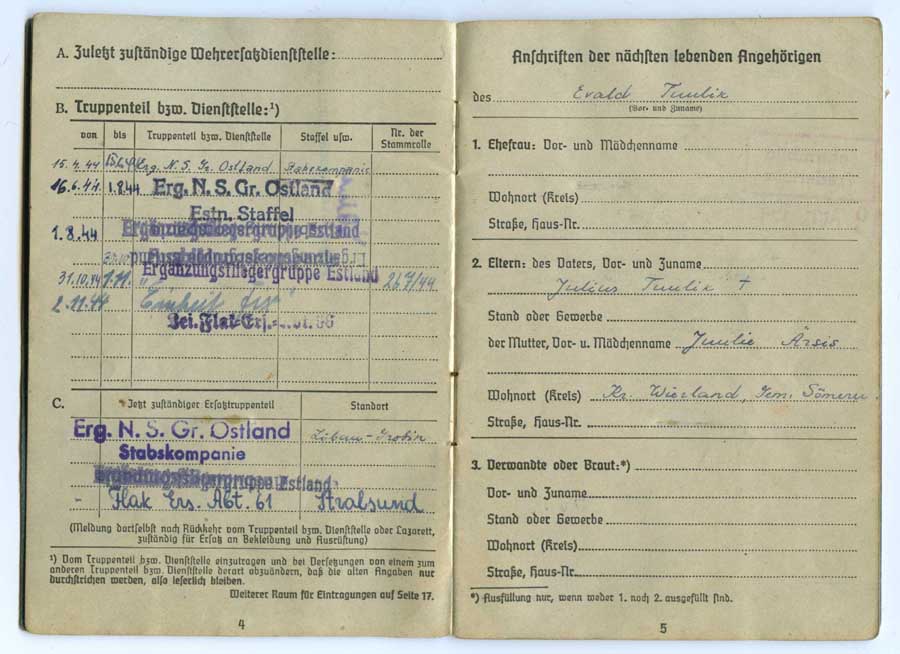 A. Zuletzt zuständige Wehrersatzdienststelle:
B. Truppenteil bzw. Dienststelle:¹)
von bis Truppenteil bzw. Dienststelle Staffel usw. Nr. der Stammrolle
15.4.44 Erg. N. S. Gr. Ostland Stabskompanie
16.6.44 1.8.44 Erg. N. S. Gr. Ostland
Estn. Staffel
1.8.44 Ergänzungsfliegergruppe Estland
31.10.44 1.11. Ergänzungsfliegergruppe Estland 267/44
2.11.44 Einheit
C. Jetzt zuständiger Ersatztruppenteil Standort
Erg. N. S. Gr. Ostland Libau-Grobin
Stabskompanie
Ergänzungsfliegergruppe Estland
- Flak Ers. Abt. 61 Stralsund
(Meldung dortselbst nach Rückkehr vom Truppenteil bzw. Dienststelle oder Lazarett,
zuständig für Ersatz an Bekleidung und Ausrüstung)
¹) Vom Truppenteil bzw. Dienststelle einzutragen und bei Versetzungen von einem zum
anderen Truppenteil bzw. Dienststelle derart abzuändern, daß die alten Angaben nur
durchstrichen werden, also leserlich bleiben.
Weiterer Raum für Eintragungen auf Seite 17.
4
Anschriften der nächsten lebenden Angehörigen
des Evald Tuulik
(Vor- und Zuname)
1. Ehefrau: Vor- und Mädchenname
Wohnort (Kreis)
Straße, Haus-Nr.
2. Eltern: des Vaters, Vor- und Zuname
Julius Tuulik †
Stand oder Gewerbe
der Mutter, Vor- u. Mädchenname Juulie Ärsis
Wohnort (Kreis) Kr. Wierland, Gem. Sõmeru.
Straße, Haus-Nr.
3. Verwandte oder Braut:*)
Vor- und Zuname
Stand oder Gewerbe
Wohnort (Kreis)
Straße, Haus-Nr.
*) Ausfüllung nur, wenn weder 1. noch 2. ausgefüllt sind.
5